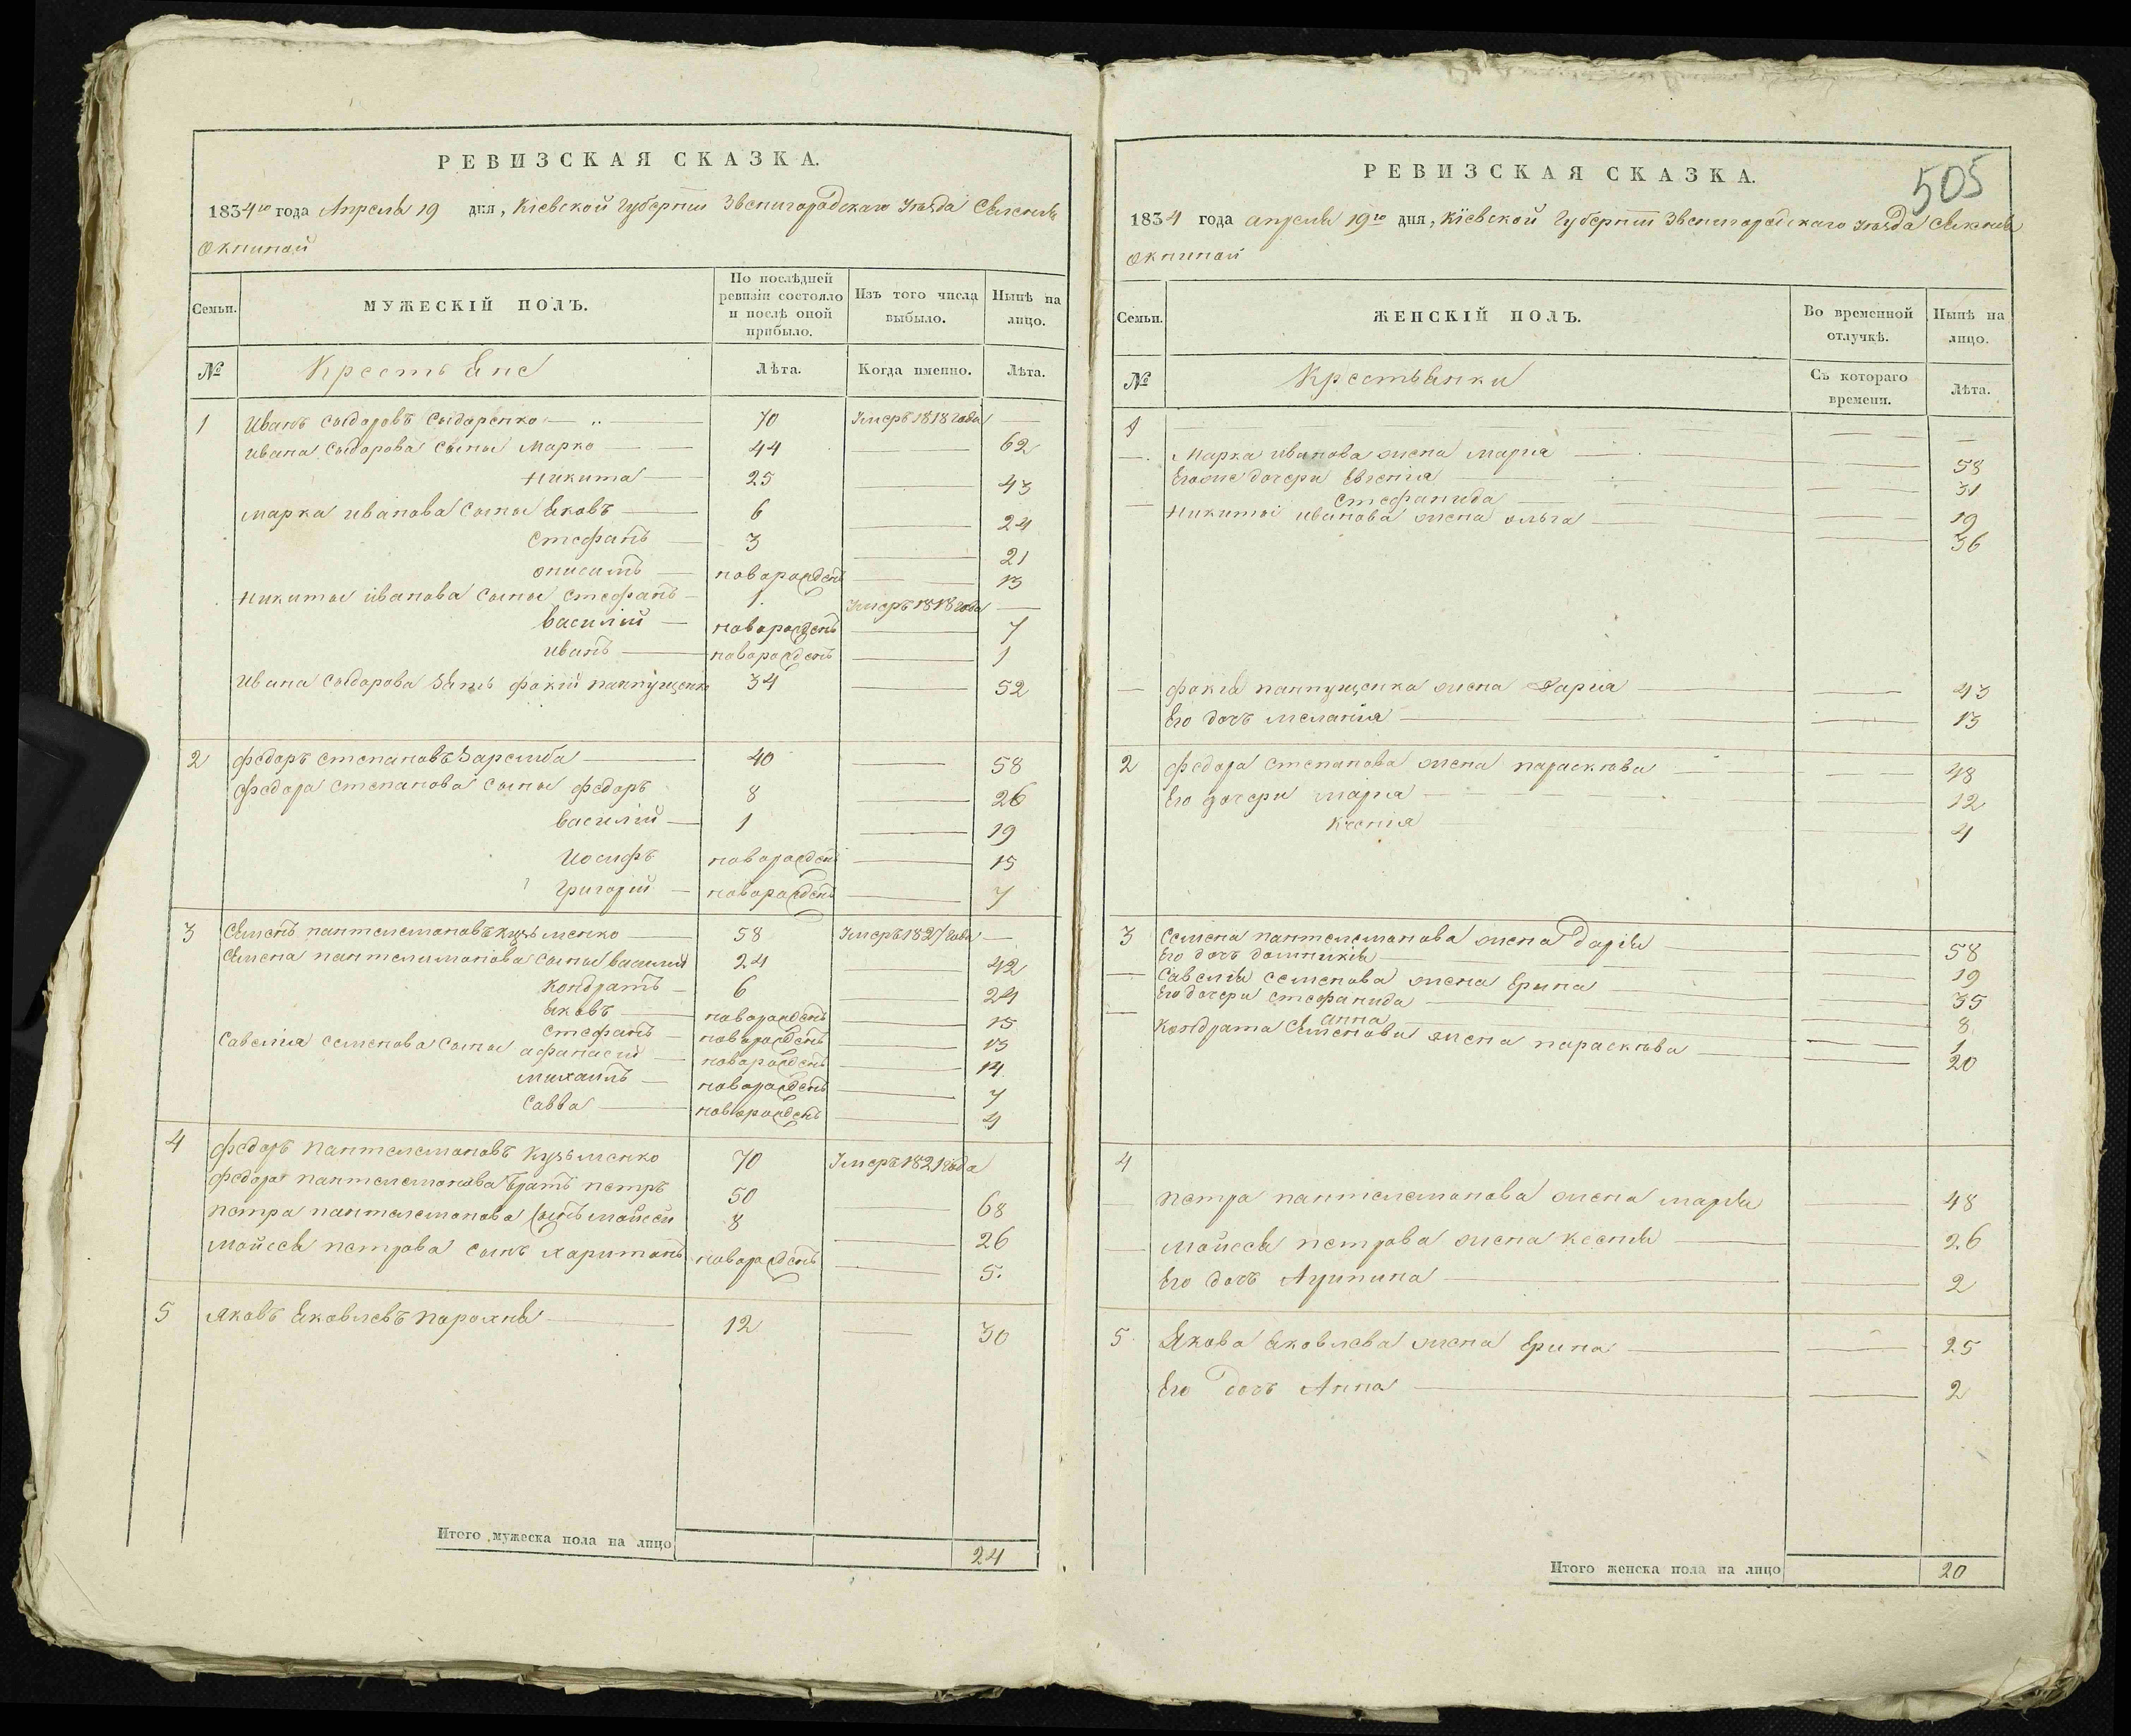 РЕВИЗСКАЯ СКАЗКА.
1834го года Апреля 19 дня, Кіевской Губерніи Звенигородскаго уѣзда Селенія
Окниной
Семьи. МУЖЕСКІЙ ПОЛЪ. По послѣдней ревизіи состояло и послѣ оной прибыло. Изъ того числа выбыло. Нынѣ на лицо.
№ Крестьяне Лѣта. Когда именно. Лѣта.
1 Иванъ Сыдоровъ Сыдоренко 70 Умеръ 1818 года —
Ивана Сыдорова сыны Марко 44 — 62
Никита 25 — 43
Марка Иванова сыны Яковъ 6 — 24
Стефанъ 3 — 21
Онисимъ новорожденъ — 13
Никиты Иванова сыны Стефанъ 1 Умеръ 1818 года —
Василій новорожденъ — 7
Иванъ новорожденъ — 1
Ивана Сыдорова зять Фокій 34 — 52
2 Федоръ Степановъ Заремба 40 — 58
Федора Степанова сыны Федоръ 8 — 26
Василій 1 — 19
Иосифъ новорожденъ — 15
Григорій новорожденъ — 7
3 Семенъ Пантелемоновъ Кузьменко 58 Умеръ 1827 года —
Семена Пантелимонова сыны 24 — 42
Кондратъ 6 — 24
Яковъ новорожденъ — 15
Стефанъ новорожденъ — 13
Савелія Семенова сыны Афанасій новорожденъ — 14
Михаилъ новорожденъ — 7
Савва новорожденъ — 4
4 Федоръ Пантелемоновъ Кузьменко 70 Умеръ 1821 года
Федора Пантелемонова братъ Петръ 50 — 68
Петра Пантелемонова сынъ Мойсей 8 — 26
Мойсея Петрова сынъ Харитонъ новорожденъ — 5.
5 Яковъ Яковлевъ 12 — 30
Итого мужеска пола на лицо 24
505
РЕВИЗСКАЯ СКАЗКА.
1834 года апреля 19го дня, Кіевской Губерніи Звенигородскаго уѣзда Селенія
Окниной
Семьи. ЖЕНСКІЙ ПОЛЪ. Во временной отлучкѣ. Нынѣ на лицо.
№ Крестьянки Съ котораго времени. Лѣта.
1 — — —
Марка Иванова жена Марія — 58
Егоже дочери Евгенія — 31
Стефанида — 19
Никиты Иванова жена Ольга — 36
Фокія жена Дарія — 43
Его дочь Меланія — 13
2 Федора Степанова жена Параскѣва — 48
Его дочери Марія — 12
Ксенія — 4
3 Семена Пантелемонова жена Дарія — 58
Его дочь Домникія — 19
Савелія Семенова жена Ерина — 35
Его дочери Стефанида — 8
Анна — 1
Кондрата Семенова жена Параскѣва — 20
4
Петра Пантелемонова жена Марія — 48
Мойсея Петрова жена Ксенія — 26
Его дочь Агрипина — 2
5 Якова Яковлева жена Ерина — 25
Его дочь Анна — 2
Итого женска пола на лицо 20